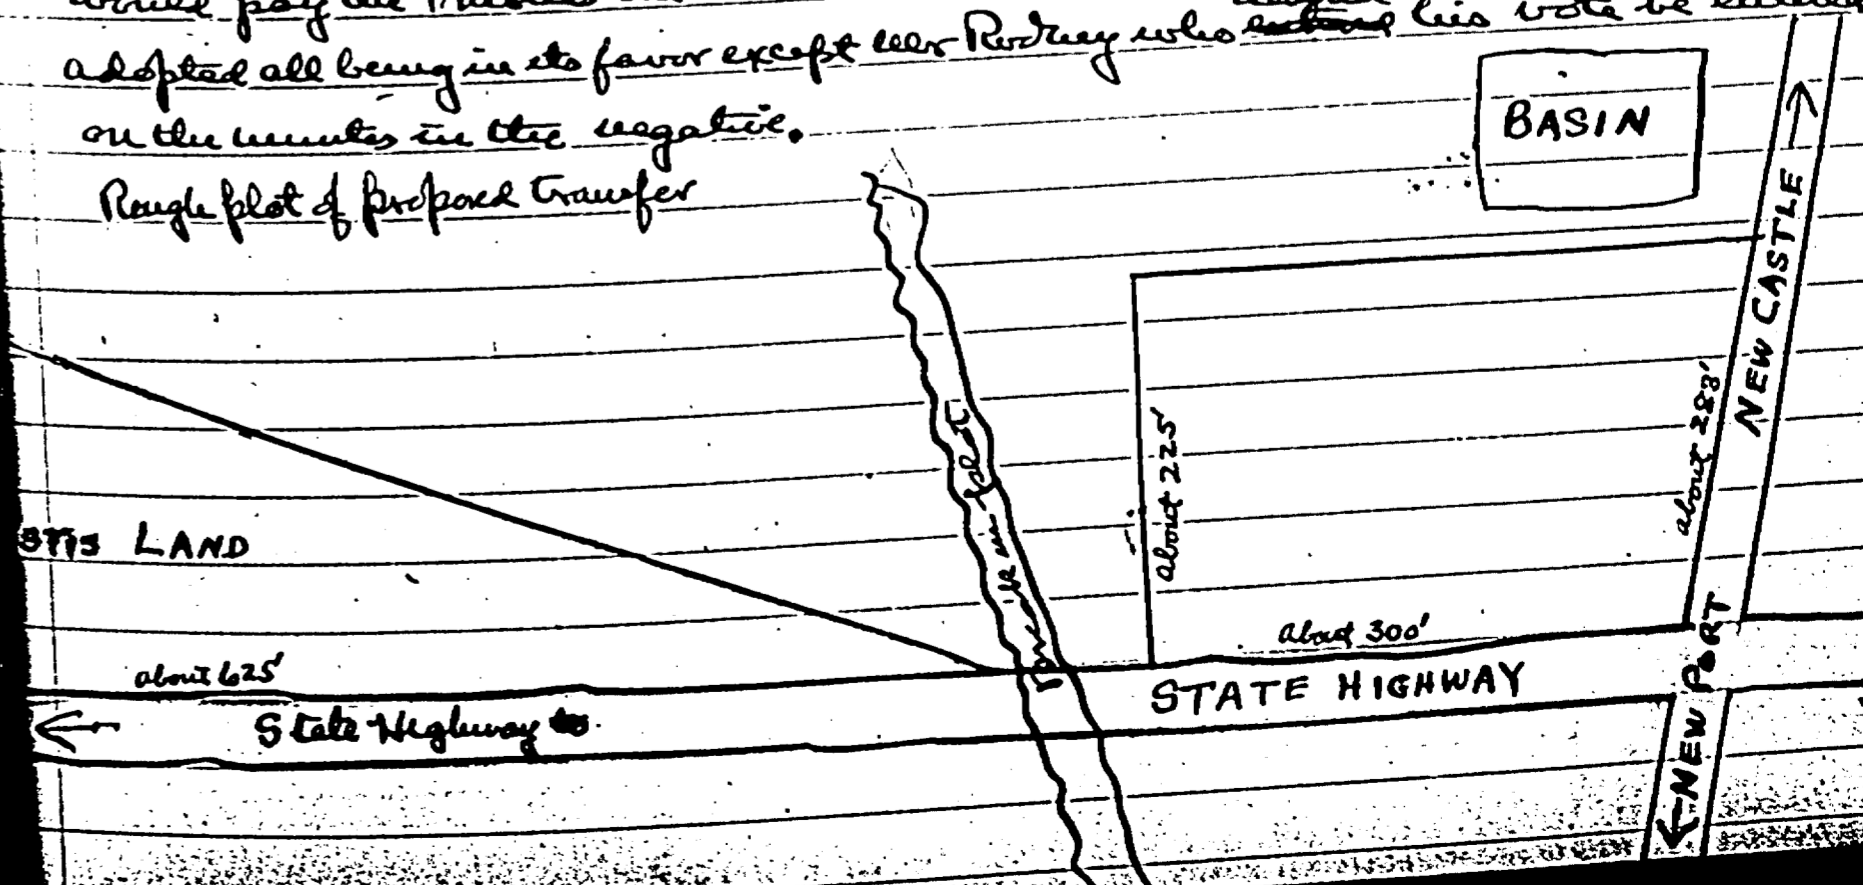 would pay the Trustees
adopted all being in its favor except Mr Rodney who his vote be
on the minutes in the negative.
Rough plot of proposed transfer
BASIN
NEW CASTLE
about 225'
about 283'
LAND
about 625'
about 300'
STATE HIGHWAY
State Highway to
NEW PORT